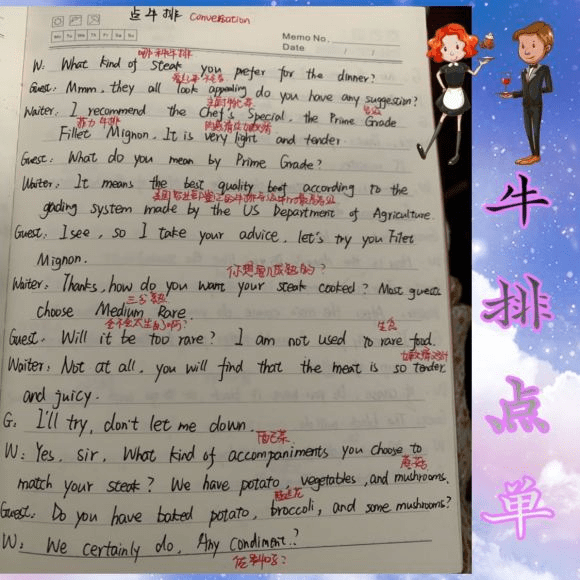 点牛排 Conversation
Memo No.
Mo Tu We Th Fr Sa Su
Date / /
哪种牛排
W: What kind of steak you prefer for the dinner?
Guest: Mmm, they all look appealing do you have any suggestion?
Waiter: I recommend the Chef's Special, the Prime Grade
菲力牛排
Fillet Mignon. It is very light and tender.
Guest: What do you mean by Prime Grade?
Waiter: It means the best quality beef according to the
grading system made by the US Department of Agriculture.
Guest: I see, so I take your advice, let's try you Filet
Mignon.
你想要几成熟的?
Waiter: Thanks, how do you want your steak cooked? Most guests
三分熟
choose Medium Rare.
会不会太生了啊?
生食
Guest: Will it be too rare? I am not used to rare food.
Waiter: Not at all, you will find that the meat is so tender
and juicy.
G: I'll try, don't let me down.
配菜
W: Yes, sir, What kind of accompaniments you choose to
蘑菇
match your steak? We have potato, vegetables, and mushrooms.
Guest: Do you have baked potato, broccoli, and some mushrooms?
W: We certainly do, Any Condiment?
牛
排
点
单